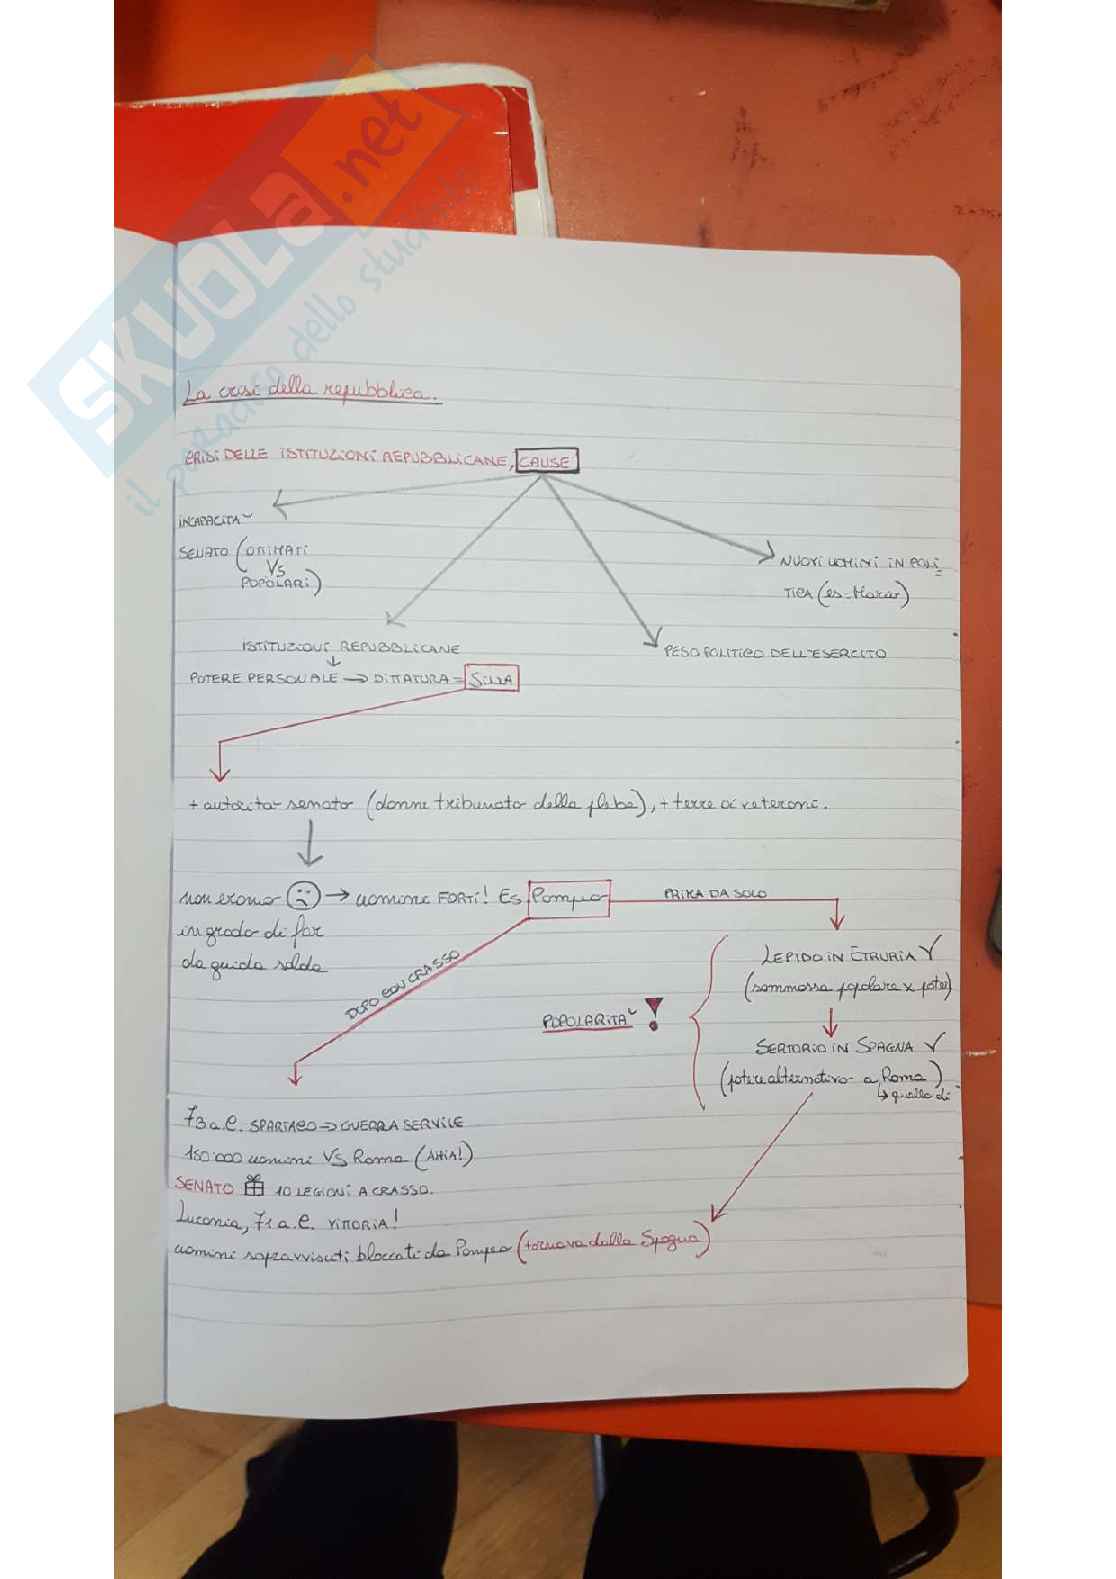 SKUOLA.net
il paradiso dello studente
La crisi della repubblica.
CRISI DELLE ISTITUZIONI REPUBBLICANE, CAUSE
INCAPACITA
SENATO (OTTIMATI
VS
POPOLARI)
NUOVI UOMINI IN POLI
TICA (es. Mario)
ISTITUZIONI REPUBBLICANE
PESO POLITICO DELL'ESERCITO
POTERE PERSONALE → DITTATURA = SILLA
+ autorita senato (donne tribunato della plebe), + terre ai veterani.
non erano ☹ → uomini FORTI! ES Pompeo
PRIMA DA SOLO
in grado di far
da guida salda
DOPO CON CRASSO
LEPIDO IN ETRURIA Y
(sommossa popolare x poter)
POPOLARITA !
SERTORIO IN SPAGNA Y
(potere alternativo a Roma)
↳ quello di
73 a.C. SPARTACO ⇒ GUERRA SERVILE
150'000 uomini VS Roma (AHIA!)
SENATO 10 LEGIONI A CRASSO.
Lucania, 71 a.C. VITTORIA!
uomini sopravvissuti bloccati da Pompeo (tornava dalla Spagna)